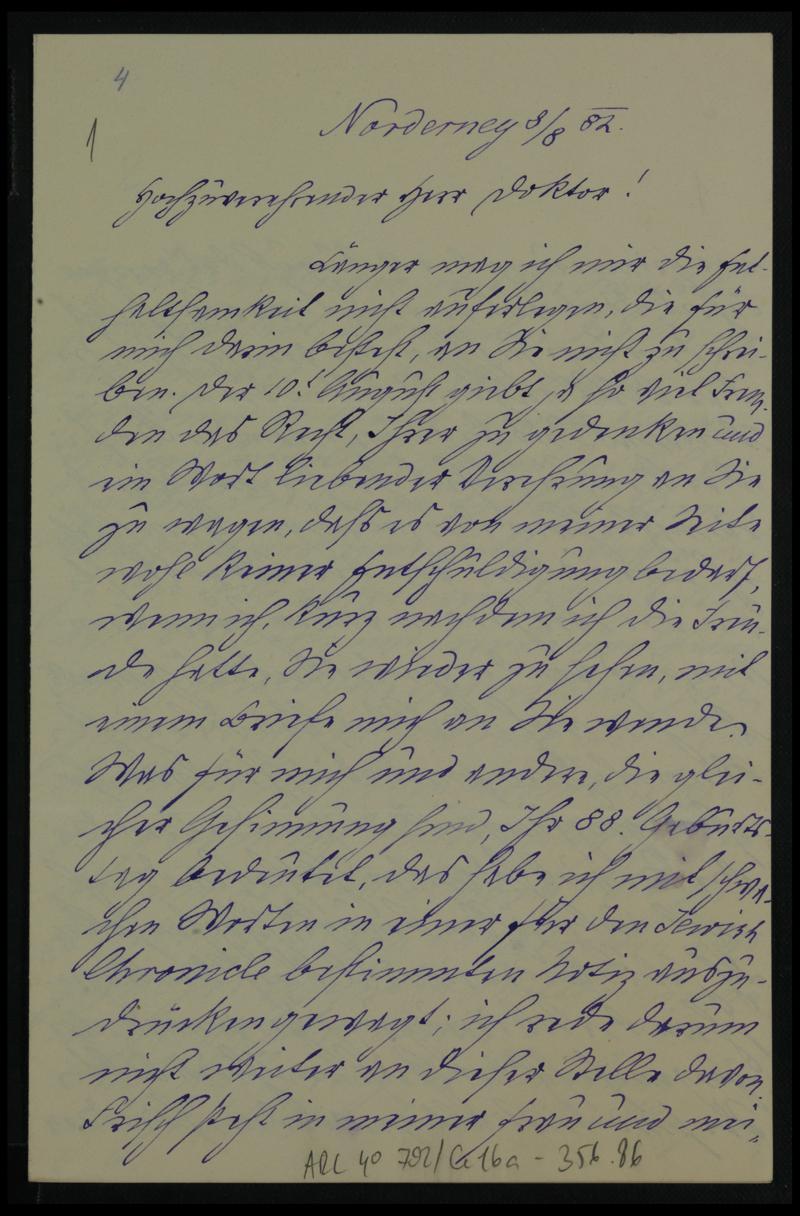 4
1
Norderney 8/8 82.
Hochzuverehrender Herr Doktor!
Länger mag ich mir die Ent-
haltsamkeit nicht auferlegen, die für
mich darin besteht, an Sie nicht zu schrei-
ben. Der 10t August giebt ja so viel Frem-
den das Recht, Ihrer zu gedenken und
ein Wort liebender Verehrung an Sie
zu wagen, daß es von meiner Seite
wohl keiner Entschuldigung bedarf,
wenn ich, kurz nachdem ich die Freu-
de hatte, Sie wieder zu sehen, mit
einem Briefe mich an Sie wende.
Was für mich und andere, die glei-
cher Gesinnung sind, Ihr 88. Geburts-
tag bedeutet, das habe ich mit schwa-
chen Worten in einer für den Jewish
Chronicle bestimmten Notiz auszu-
drücken gewagt; ich rede darum
nicht weiter an dieser Stelle davon.
Frisch steht in meiner Frau und mei-
ARC 4o 792/Ce 16a - 356.86